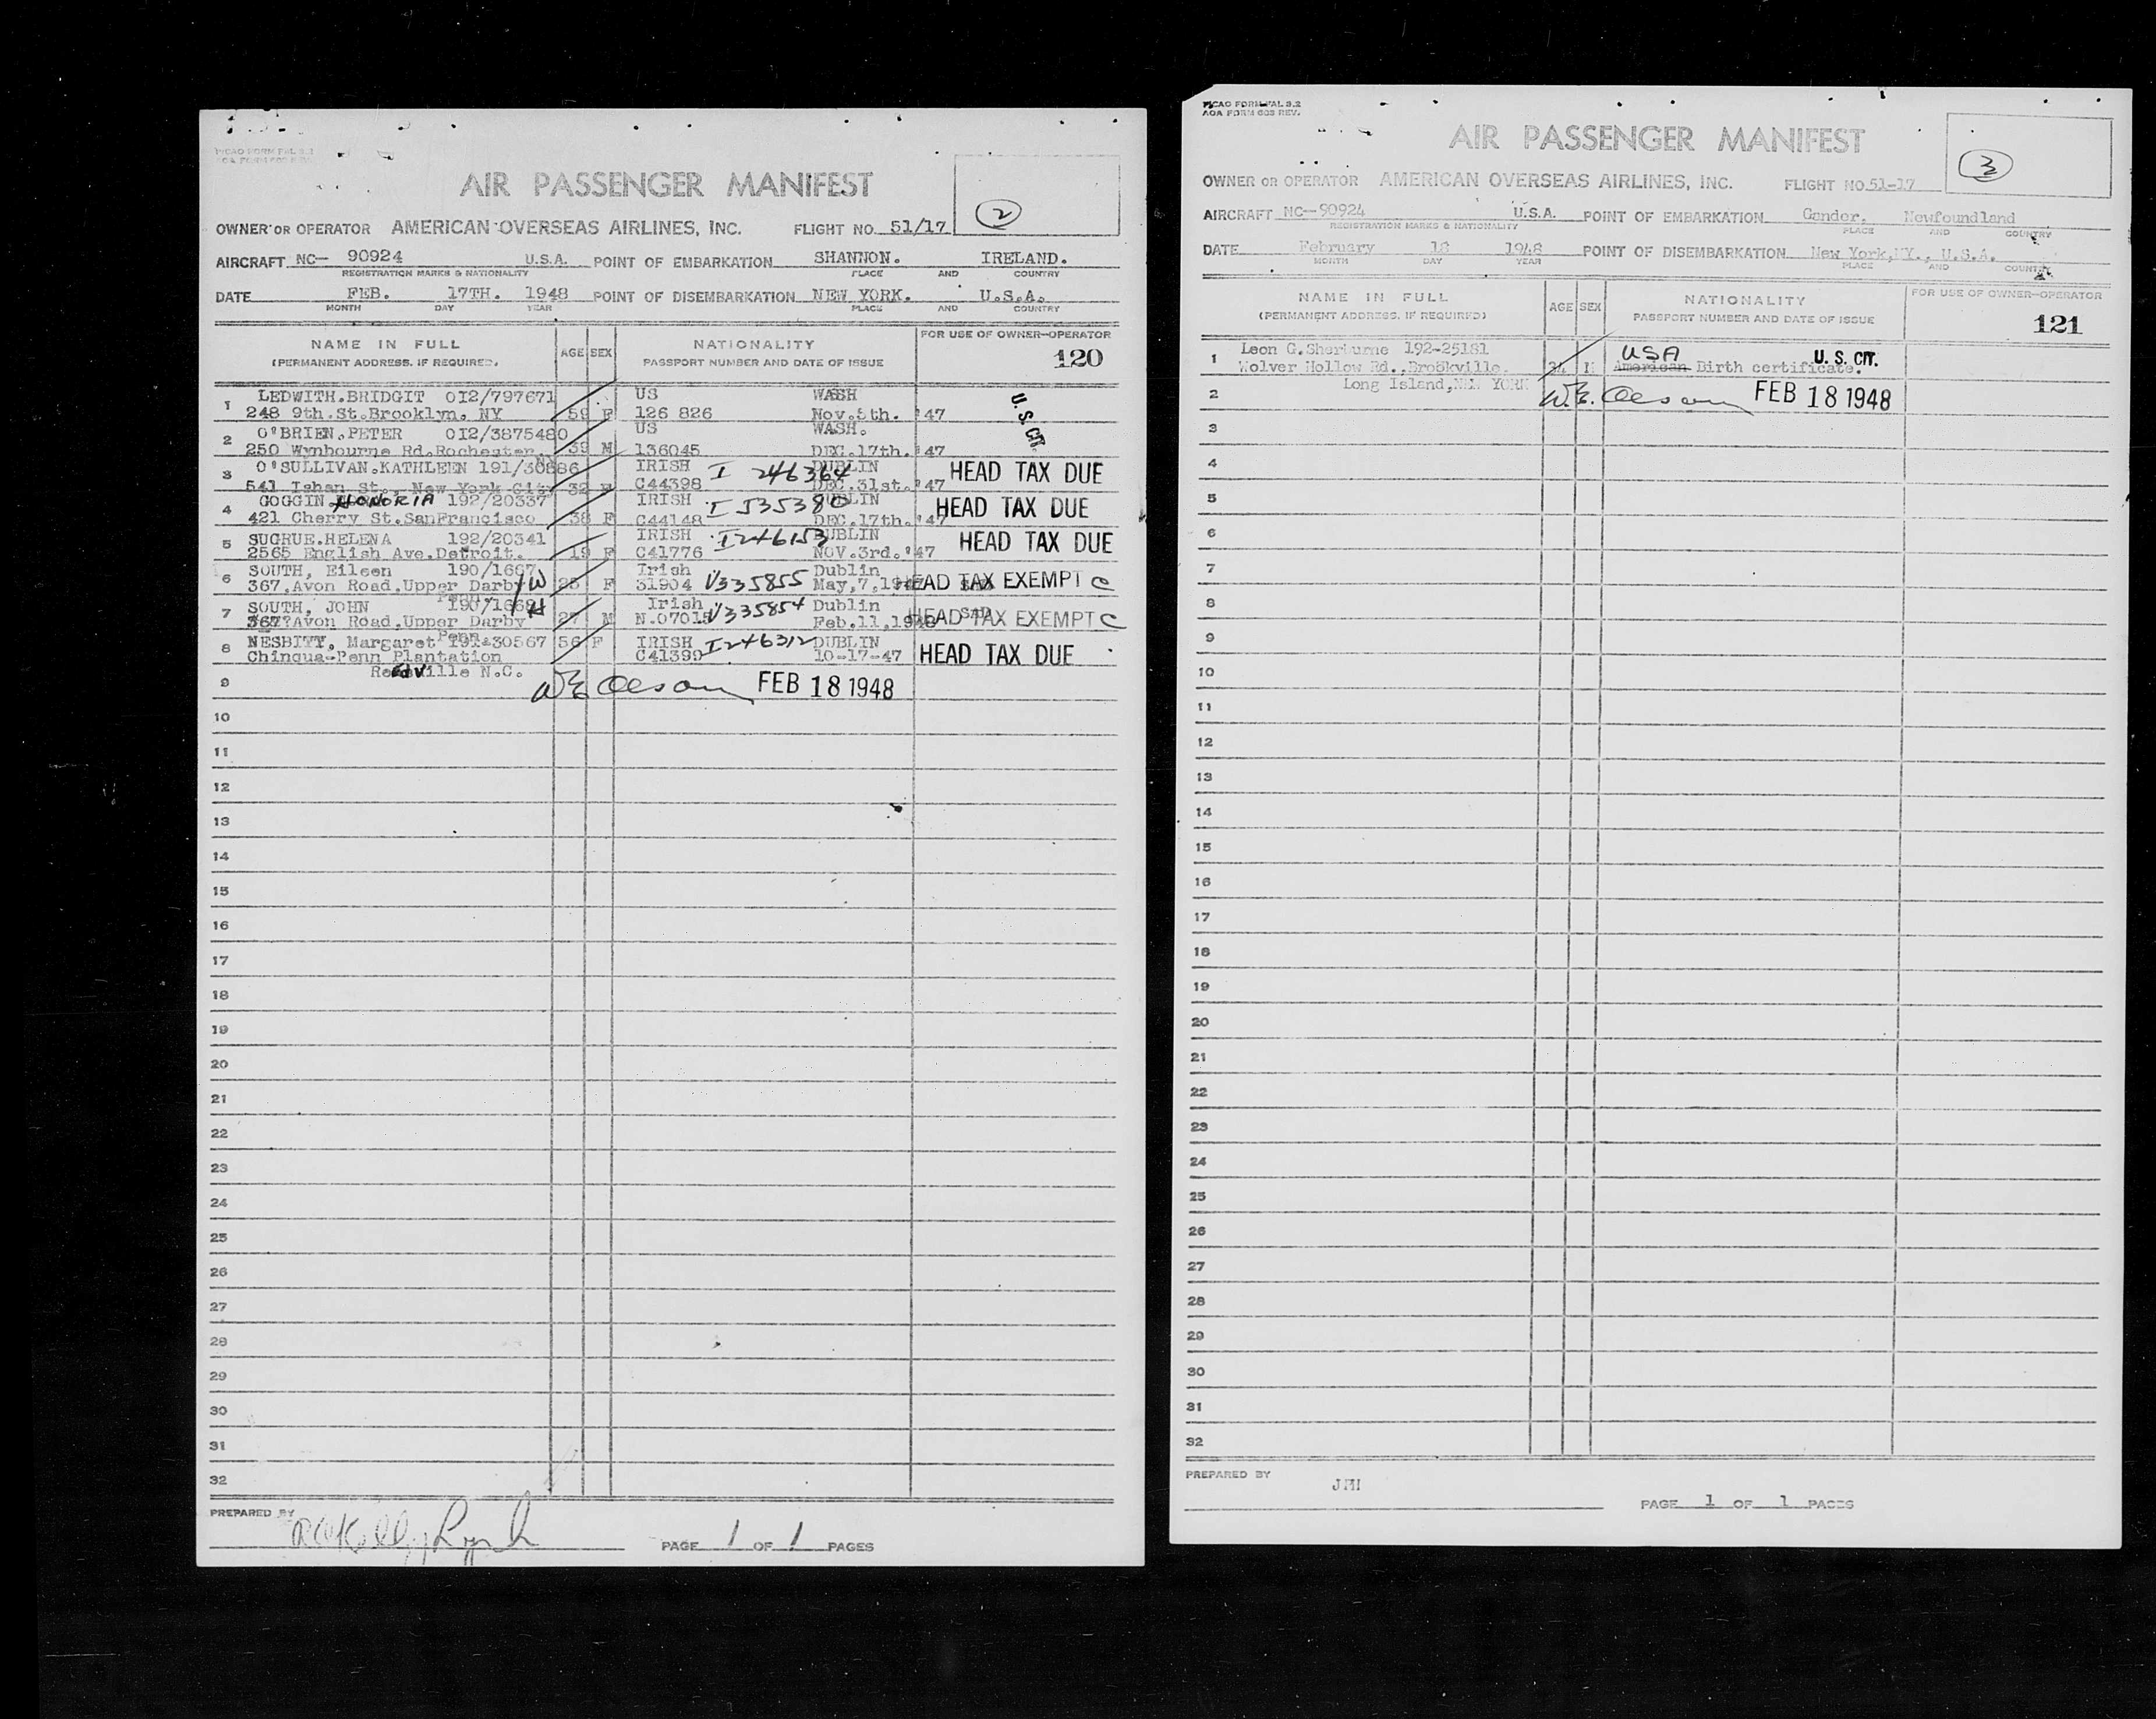 AIR PASSENGER MANIFEST
2
OWNER OR OPERATOR AMERICAN OVERSEAS AIRLINES, INC. FLIGHT NO. 51/17
AIRCRAFT NC- 90924 U.S.A. POINT OF EMBARKATION SHANNON. IRELAND.
REGISTRATION MARKS & NATIONALITY PLACE AND COUNTRY
DATE FEB. 17TH. 1948 POINT OF DISEMBARKATION NEW YORK. U.S.A.
MONTH DAY YEAR PLACE AND COUNTRY
NAME IN FULL AGE SEX NATIONALITY FOR USE OF OWNER-OPERATOR
(PERMANENT ADDRESS. IF REQUIRED) PASSPORT NUMBER AND DATE OF ISSUE 120
1 LEDWITH.BRIDGIT 012/797671 US WASH U.S. CIT.
248 9th.St.Brooklyn. NY 59 F 126 826 Nov.5th. '47
2 O'BRIEN.PETER 012/3875480 US WASH.
250 Wynbourne Rd.Rochester. NY 39 M 136045 DEC.17th. '47
3 O'SULLIVAN.KATHLEEN 191/30886 IRISH I 246364 DUBLIN HEAD TAX DUE
541 Ishan St., New York City 32 F C44398 DEC.31st. '47
4 GOGGIN. HONORIA 192/20337 IRISH I 535380 DUBLIN HEAD TAX DUE
421 Cherry St.SanFrancisco 38 F C44148 DEC.17th. '47
5 SUGRUE.HELENA 192/20341 IRISH I246153 DUBLIN HEAD TAX DUE
2565 English Ave.Detroit. 19 F C41776 NOV.3rd. '47
6 SOUTH, Eileen 190/1667 Irish V335855 Dublin HEAD TAX EXEMPT C
367,Avon Road,Upper Darby W F 31904 May,7,
Penn
7 SOUTH, JOHN 190/1668 H Irish V335854 Dublin HEAD TAX EXEMPT C
367?Avon Road,Upper Darby 27 M N.07015 Feb.11,
Penn
8 NESBITT, Margaret 191-30567 56 F IRISH I246312 DUBLIN HEAD TAX DUE
Chinqua-Penn Plantation C41399 10-17-47
Reidville N.C.
9 W E Olson FEB 18 1948
10
11
12
13
14
15
16
17
18
19
20
21
22
23
24
25
26
27
28
29
30
31
32
PREPARED BY
PAGE 1 OF 1 PAGES
PICAO FORM FAL 3.2
AOA FORM 603 REV.
AIR PASSENGER MANIFEST
3
OWNER OR OPERATOR AMERICAN OVERSEAS AIRLINES, INC. FLIGHT NO. 51-17
AIRCRAFT NC-90924 U.S.A. POINT OF EMBARKATION Gander, Newfoundland
REGISTRATION MARKS & NATIONALITY PLACE AND COUNTRY
DATE February 18 1948 POINT OF DISEMBARKATION New York,NY., U.S.A.
MONTH DAY YEAR PLACE AND COUNTRY
NAME IN FULL AGE SEX NATIONALITY FOR USE OF OWNER-OPERATOR
(PERMANENT ADDRESS. IF REQUIRED) PASSPORT NUMBER AND DATE OF ISSUE 121
1 Leon G.Sherburne 192-25181 USA U. S. CIT.
Wolver Hollow Rd.,Brookville. 34 M American Birth certificate.
2 Long Island,NEW YORK W.E. Olson FEB 18 1948
3
4
5
6
7
8
9
10
11
12
13
14
15
16
17
18
19
20
21
22
23
24
25
26
27
28
29
30
31
32
PREPARED BY JMH
PAGE 1 OF 1 PAGES